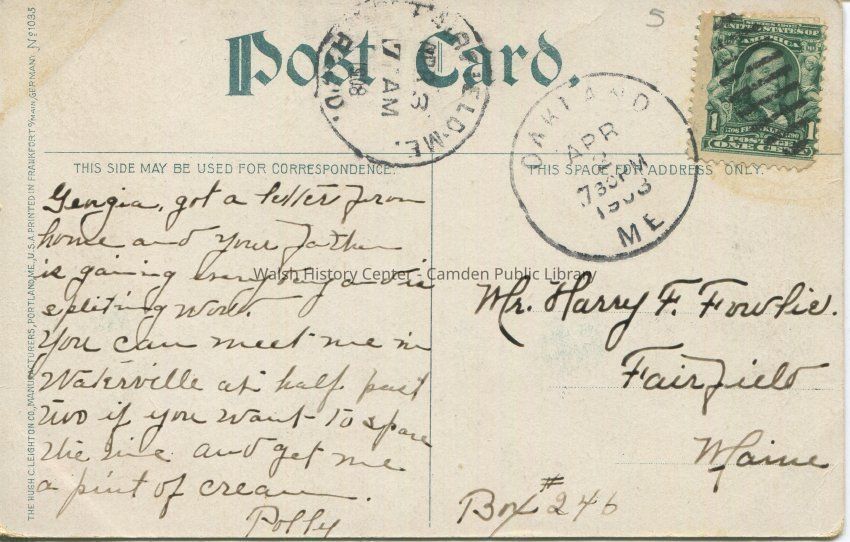 THE HUGH C. LEIGHTON CO., MANUFACTURERS, PORTLAND, ME., U.S.A. PRINTED IN FRANKFORT o/MAIN, GERMANY. No 1035
5
Post Card.
FAIRFIELD ME.
7 AM
1908
R.P.O.
OAKLAND
APR
2
7 30 PM
1908
ME
UNITED STATES OF
FRANKLIN
1 POSTAGE 1
ONE CENT
THIS SIDE MAY BE USED FOR CORRESPONDENCE.
THIS SPACE FOR ADDRESS ONLY.
Georgia, got a letter from
home and your father
is gaining every day and is
spliting wood.
You can meet me in
Waterville at half past
two if you want to spare
the time and get me
a pint of cream.
Polly
Walsh History Center - Camden Public Library
Mr. Harry F. Fowlie.
Fairfield
Maine
Box # 246